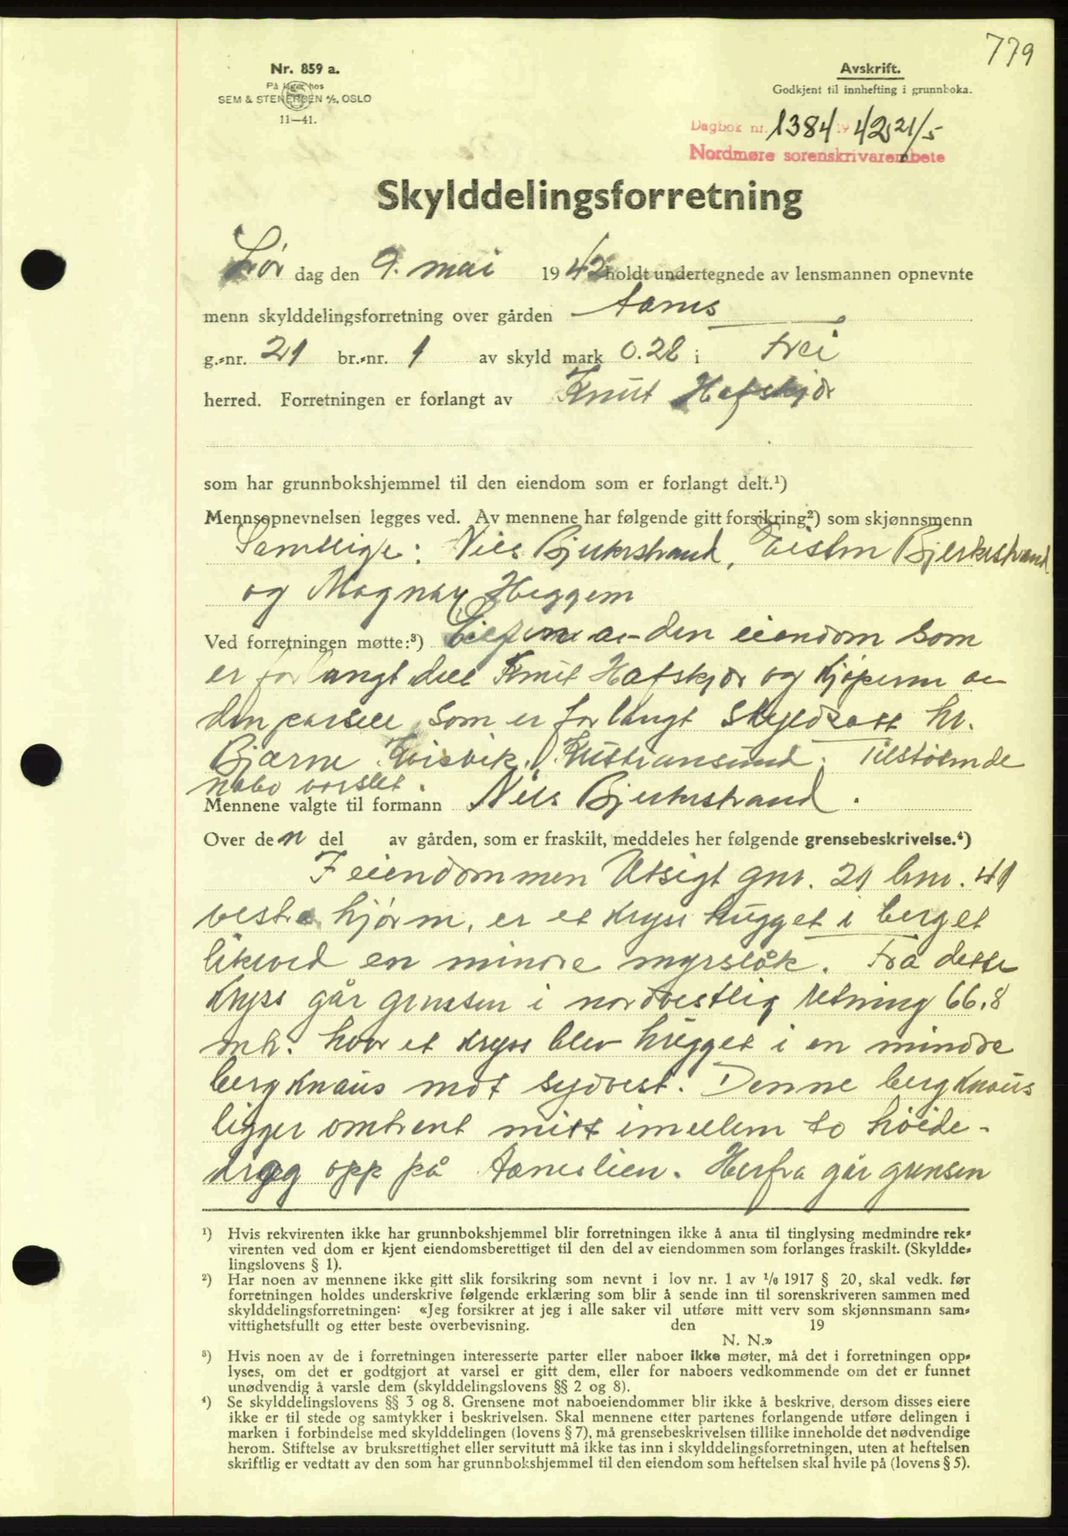 779
Nr. 859 a.
På lager hos
SEM & STENERSEN A/S, OSLO
11—41.
Avskrift.
Godkjent til innhefting i grunnboka.
Dagbok nr. 1384 19 42 21/5
Nordmøre sorenskrivarembete
Skylddelingsforretning
Lør dag den 9. mai 1942 holdt undertegnede av lensmannen opnevnte
menn skylddelingsforretning over gården Aanes
g.-nr. 21 br.-nr. 1 av skyld mark 0.28 i Frei
herred. Forretningen er forlangt av Knut Hafskjær
som har grunnbokshjemmel til den eiendom som er forlangt delt.¹)
Mennsopnevnelsen legges ved. Av mennene har følgende gitt forsikring²) som skjønnsmenn
Samtlige: Nils Bjerkestrand, Bjerkestrand
og Magnar Heggem
Ved forretningen møtte:³) Eieren av den eiendom som
er forlangt delt Knut Hafskjær og kjøperen av
den parsell som er forlangt skyldsatt hr.
Bjarne Kvisvik, Kristiansund. Tilstøtende
nabo varslet.
Mennene valgte til formann Nils Bjerkestrand.
Over den del av gården, som er fraskilt, meddeles her følgende grensebeskrivelse.⁴)
I eiendommen Utsigt gnr. 21 bnr. 41
vestre hjørne, er et kryss hugget i berget
likeved en mindre myrsløk. Fra dette
kryss går grensen i nordvestlig retning 66,8
mtr. hvor et kryss blev hugget i en mindre
bergknaus mot sydvest. Denne bergknaus
ligger omtrent mitt imellem to høide-
drag opp på Aaneslien. Herfra går grensen
¹) Hvis rekvirenten ikke har grunnbokshjemmel blir forretningen ikke å anta til tinglysing medmindre rek-
virenten ved dom er kjent eiendomsberettiget til den del av eiendommen som forlanges fraskilt. (Skyldde-
lingslovens § 1).
²) Har noen av mennene ikke gitt slik forsikring som nevnt i lov nr. 1 av 1/6 1917 § 20, skal vedk. før
forretningen holdes underskrive følgende erklæring som blir å sende inn til sorenskriveren sammen med
skylddelingsforretningen: «Jeg forsikrer at jeg i alle saker vil utføre mitt verv som skjønnsmann sam-
vittighetsfullt og etter beste overbevisning. den 19
N. N.»
³) Hvis noen av de i forretningen interesserte parter eller naboer ikke møter, må det i forretningen opp-
lyses, om det er godtgjort at varsel er gitt dem, eller for naboers vedkommende om det er funnet
unødvendig å varsle dem (skylddelingslovens §§ 2 og 8).
⁴) Se skylddelingslovens §§ 3 og 8. Grensene mot naboeiendommer blir ikke å beskrive, dersom disses eiere
ikke er til stede og samtykker i beskrivelsen. Skal mennene etter partenes forlangende utføre delingen i
marken i forbindelse med skylddelingen (lovens § 7), må grensebeskrivelsen tillike inneholde det nødvendige
herom. Stiftelse av bruksrettighet eller servitutt må ikke tas inn i skylddelingsforretningen, uten at heftelsen
skriftlig er vedtatt av den som har grunnbokshjemmel til den eiendom som heftelsen skal hvile på (lovens § 5).